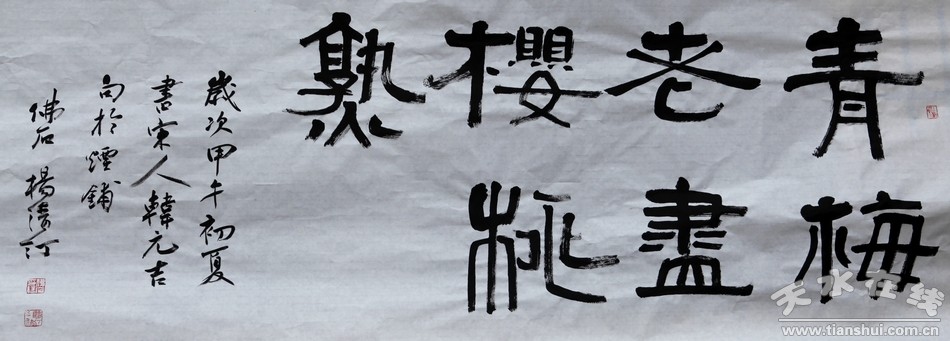 青梅
老盡
櫻桃
熟
歲次甲午初夏
書宋人韓元吉
句於煙鋪
佛石 楊清汀
天水在线
www.tianshui.com.cn